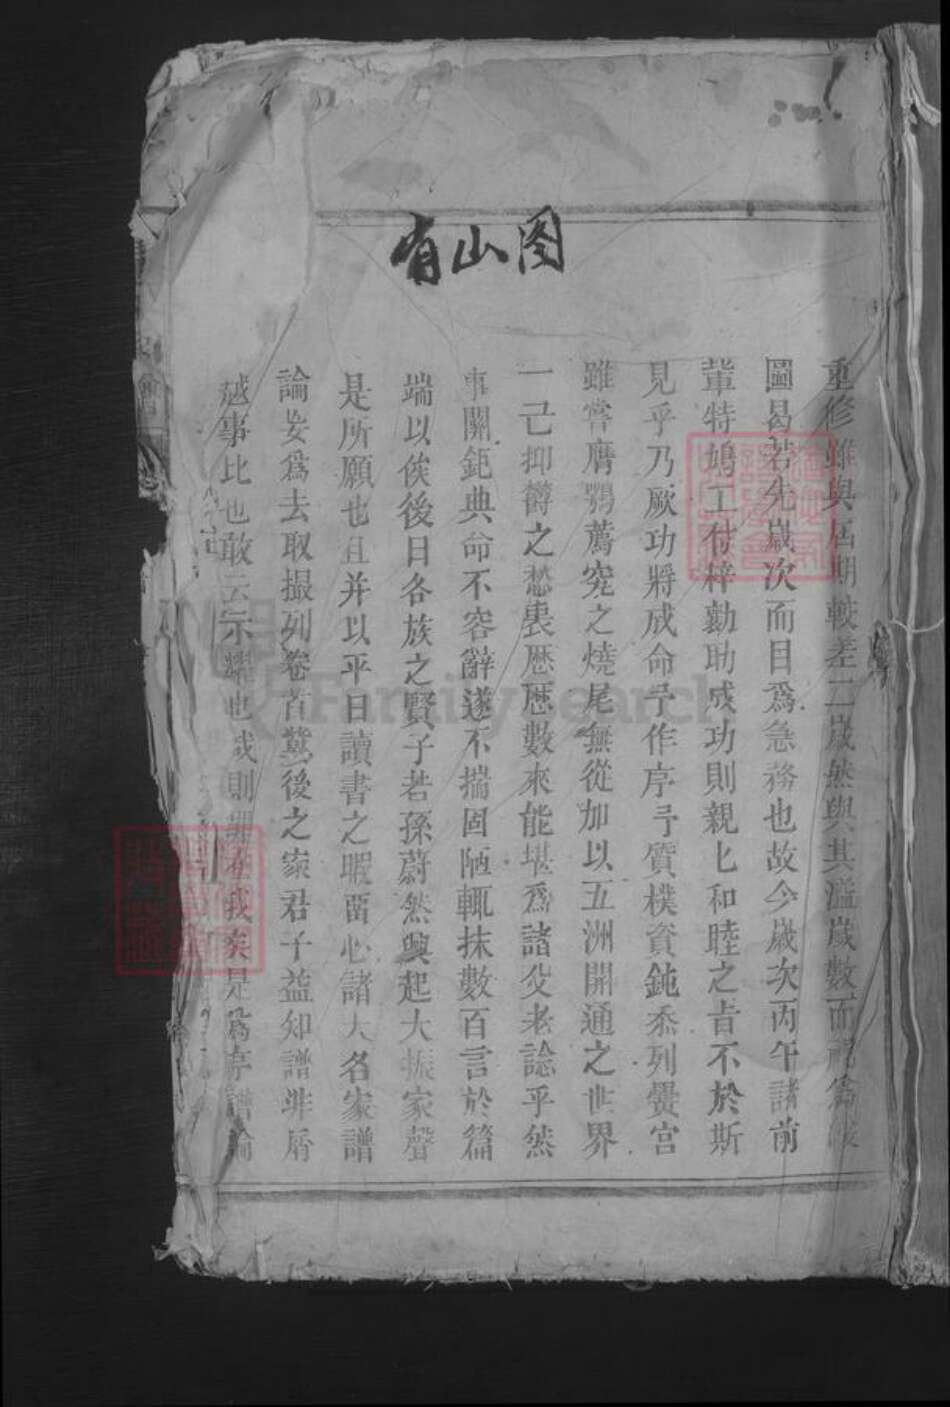 有山图
重修雖與屆期較差二歲然與其溢歲數而
圖曷若先歲次而目爲急務也故今歲次丙午諸前
輩特鳩工付梓勷助成功則親匕和睦之旨不於斯
見乎乃厥功將成命予作序予質樸資鈍忝列黌宮
雖嘗膺鶚薦究之燒尾無從加以五洲開通之世界
一己抑欝之愁裏歷歷數來能堪爲諸父老諗乎然
事關鉅典命不容辭遂不揣固陋輒抹數百言於篇
端以俟後日各族之賢子若孫蔚然興起大振家聲
是所願也且并以平日讀書之暇畱心諸大名家譜
論妄爲去取撮列卷首冀後之家君子益知譜非屑
越事比也敢云宗耀也哉則 我矣是爲序譜論
FamilySearch